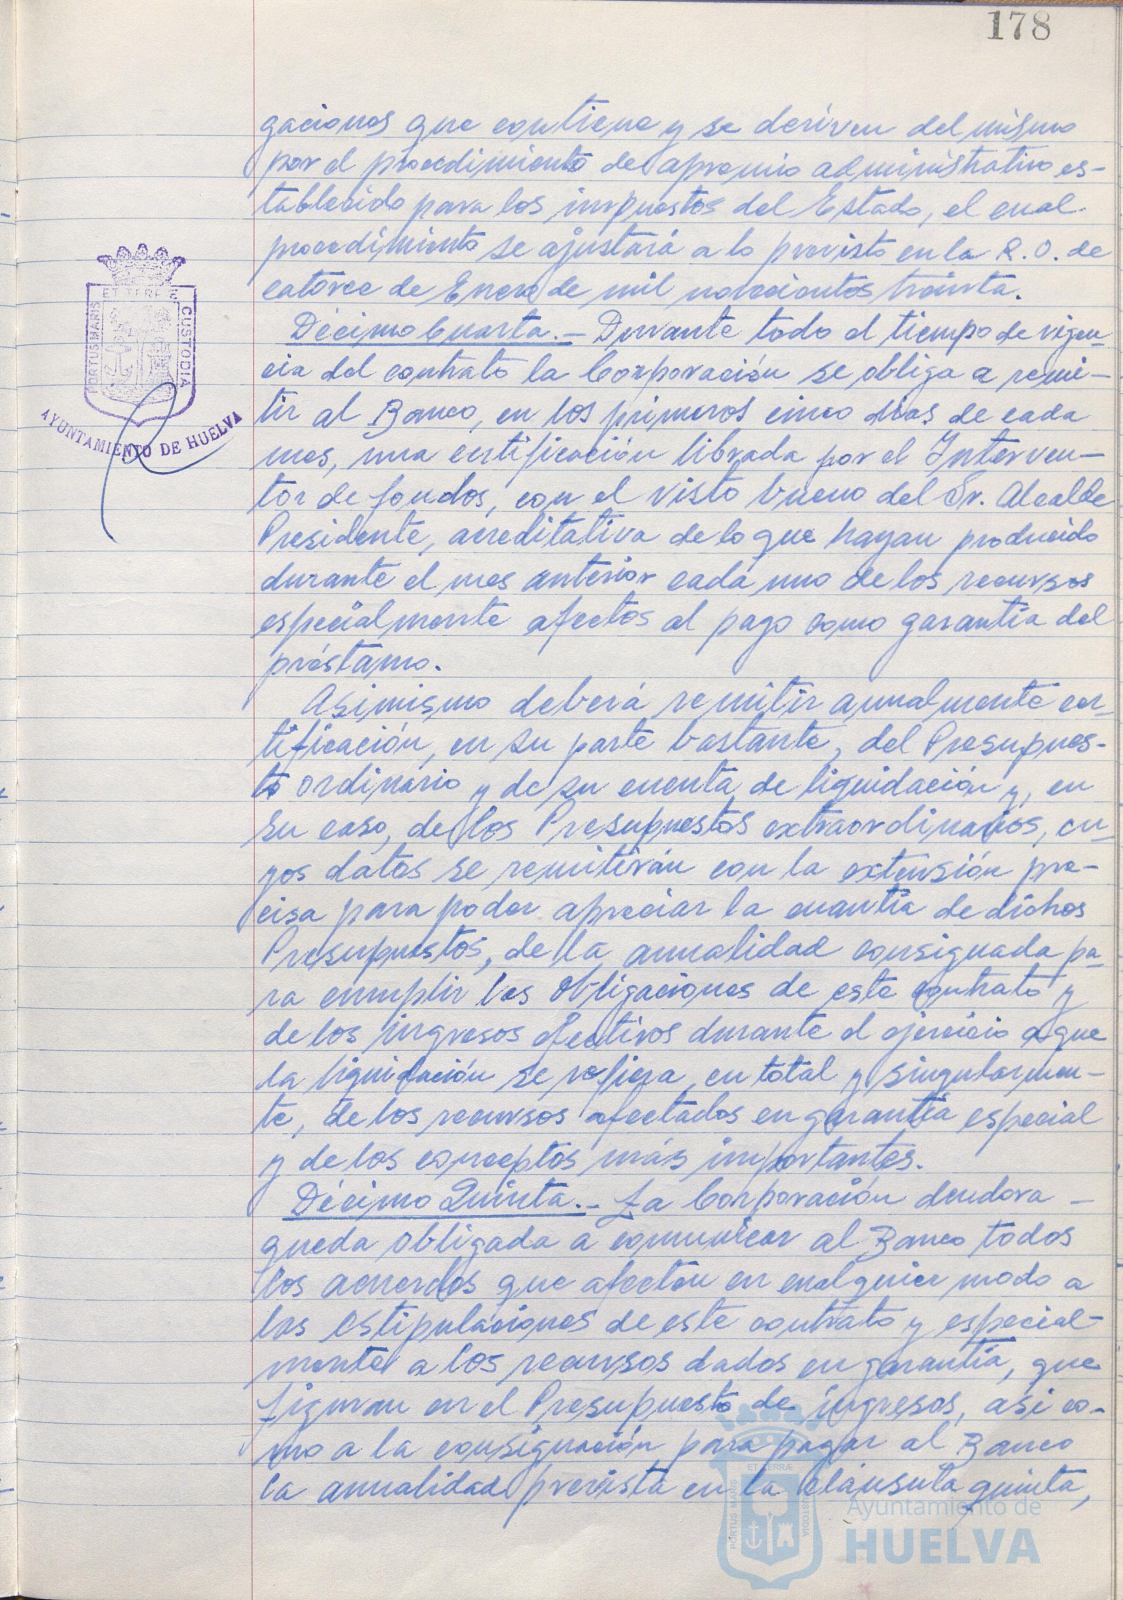 178
gaciones que contiene y se deriven del mismo
por el procedimiento de apremio administrativo es-
tablecido para los impuestos del Estado, el cual
procedimiento se ajustará a lo previsto en la R. O. de
catorce de Enero de mil novecientos treinta.
Décimo Cuarta.- Durante todo el tiempo de vigen-
cia del contrato la Corporación se obliga a remi-
tir al Banco, en los primeros cinco días de cada
mes, una certificación librada por el Interven-
tor de fondos, con el visto bueno del Sr. Alcalde
Presidente, acreditativa de lo que hayan producido
durante el mes anterior cada uno de los recursos
especialmente afectos al pago como garantía del
préstamo.
Asimismo deberá remitir anualmente cer-
tificación, en su parte bastante, del Presupues-
to ordinario y de su cuenta de liquidación y, en
su caso, de los Presupuestos extraordinarios, cu-
yos datos se remitirán con la extensión pre-
cisa para poder apreciar la cuantía de dichos
Presupuestos, de la anualidad consignada pa-
ra cumplir las obligaciones de este contrato y
de los ingresos efectivos durante el ejercicio a que
la liquidación se refiera, en total y singularmen-
te, de los recursos afectados en garantía especial
y de los conceptos más importantes.
Décimo Quinta.- La Corporación deudora -
queda obligada a comunicar al Banco todos
los acuerdos que afecten en cualquier modo a
las estipulaciones de este contrato y especial-
mente a los recursos dados en garantía, que
figuran en el Presupuesto de ingresos, asi co-
mo a la consignación para pagar al Banco
la anualidad prevista en la cláusula quinta,
PORTUS MARIS ET TERRE CUSTODIA
AYUNTAMIENTO DE HUELVA
PORTUS MARIS ET TERRÆ CUSTODIA
Ayuntamiento de
HUELVA